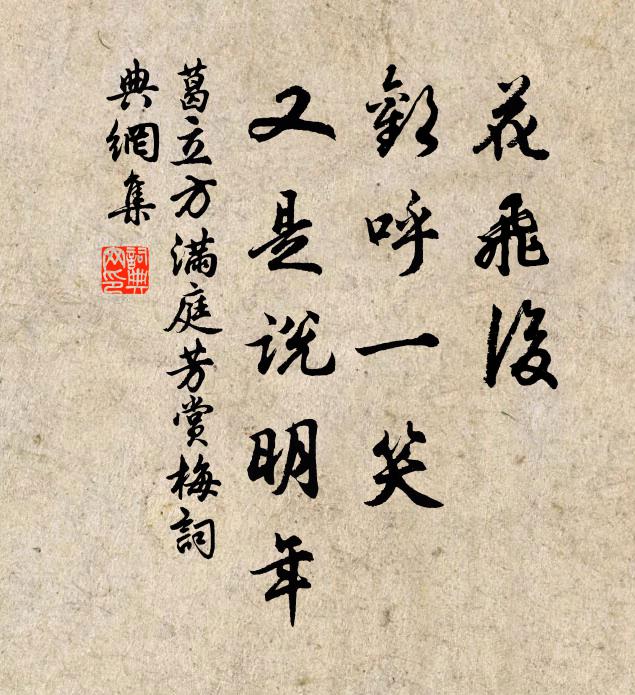 花飛後
歡呼一笑
又是説明年
葛立方滿庭芳賞梅詞
典網集
詞典
网印